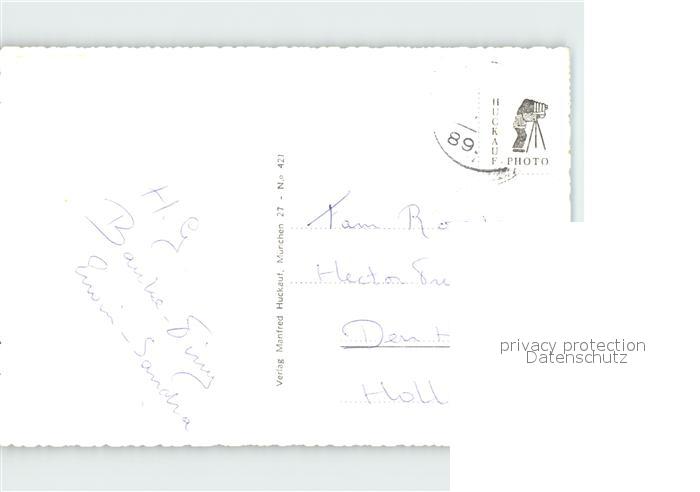 H.G
Bauke - Tiny
Erwin - Sandra
Verlag Manfred Huckauf, München 27 - No 421
HUCKAUF
PHOTO
89
Fam Ro
Hector
Den H
Holl
privacy protection
Datenschutz